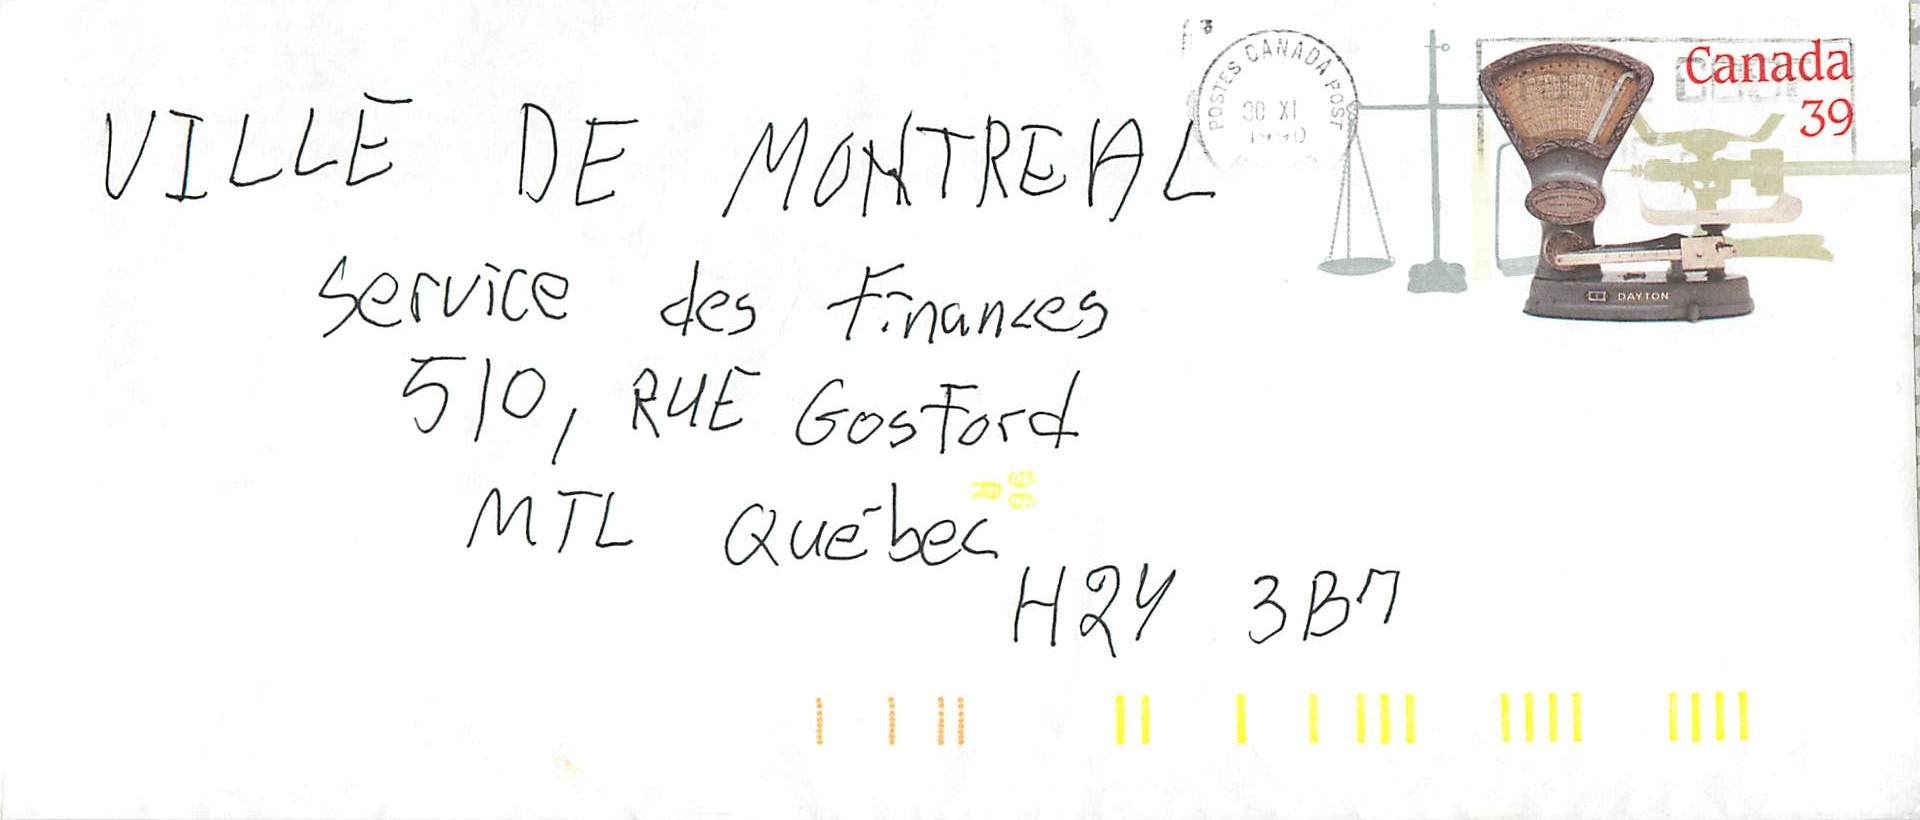 POSTES CANADA POST
30 XI
1990
Canada
39
DAYTON
VILLE DE MONTREAL
Service des Finances
510, RUE Gosford
MTL Québec
H2Y 3B7